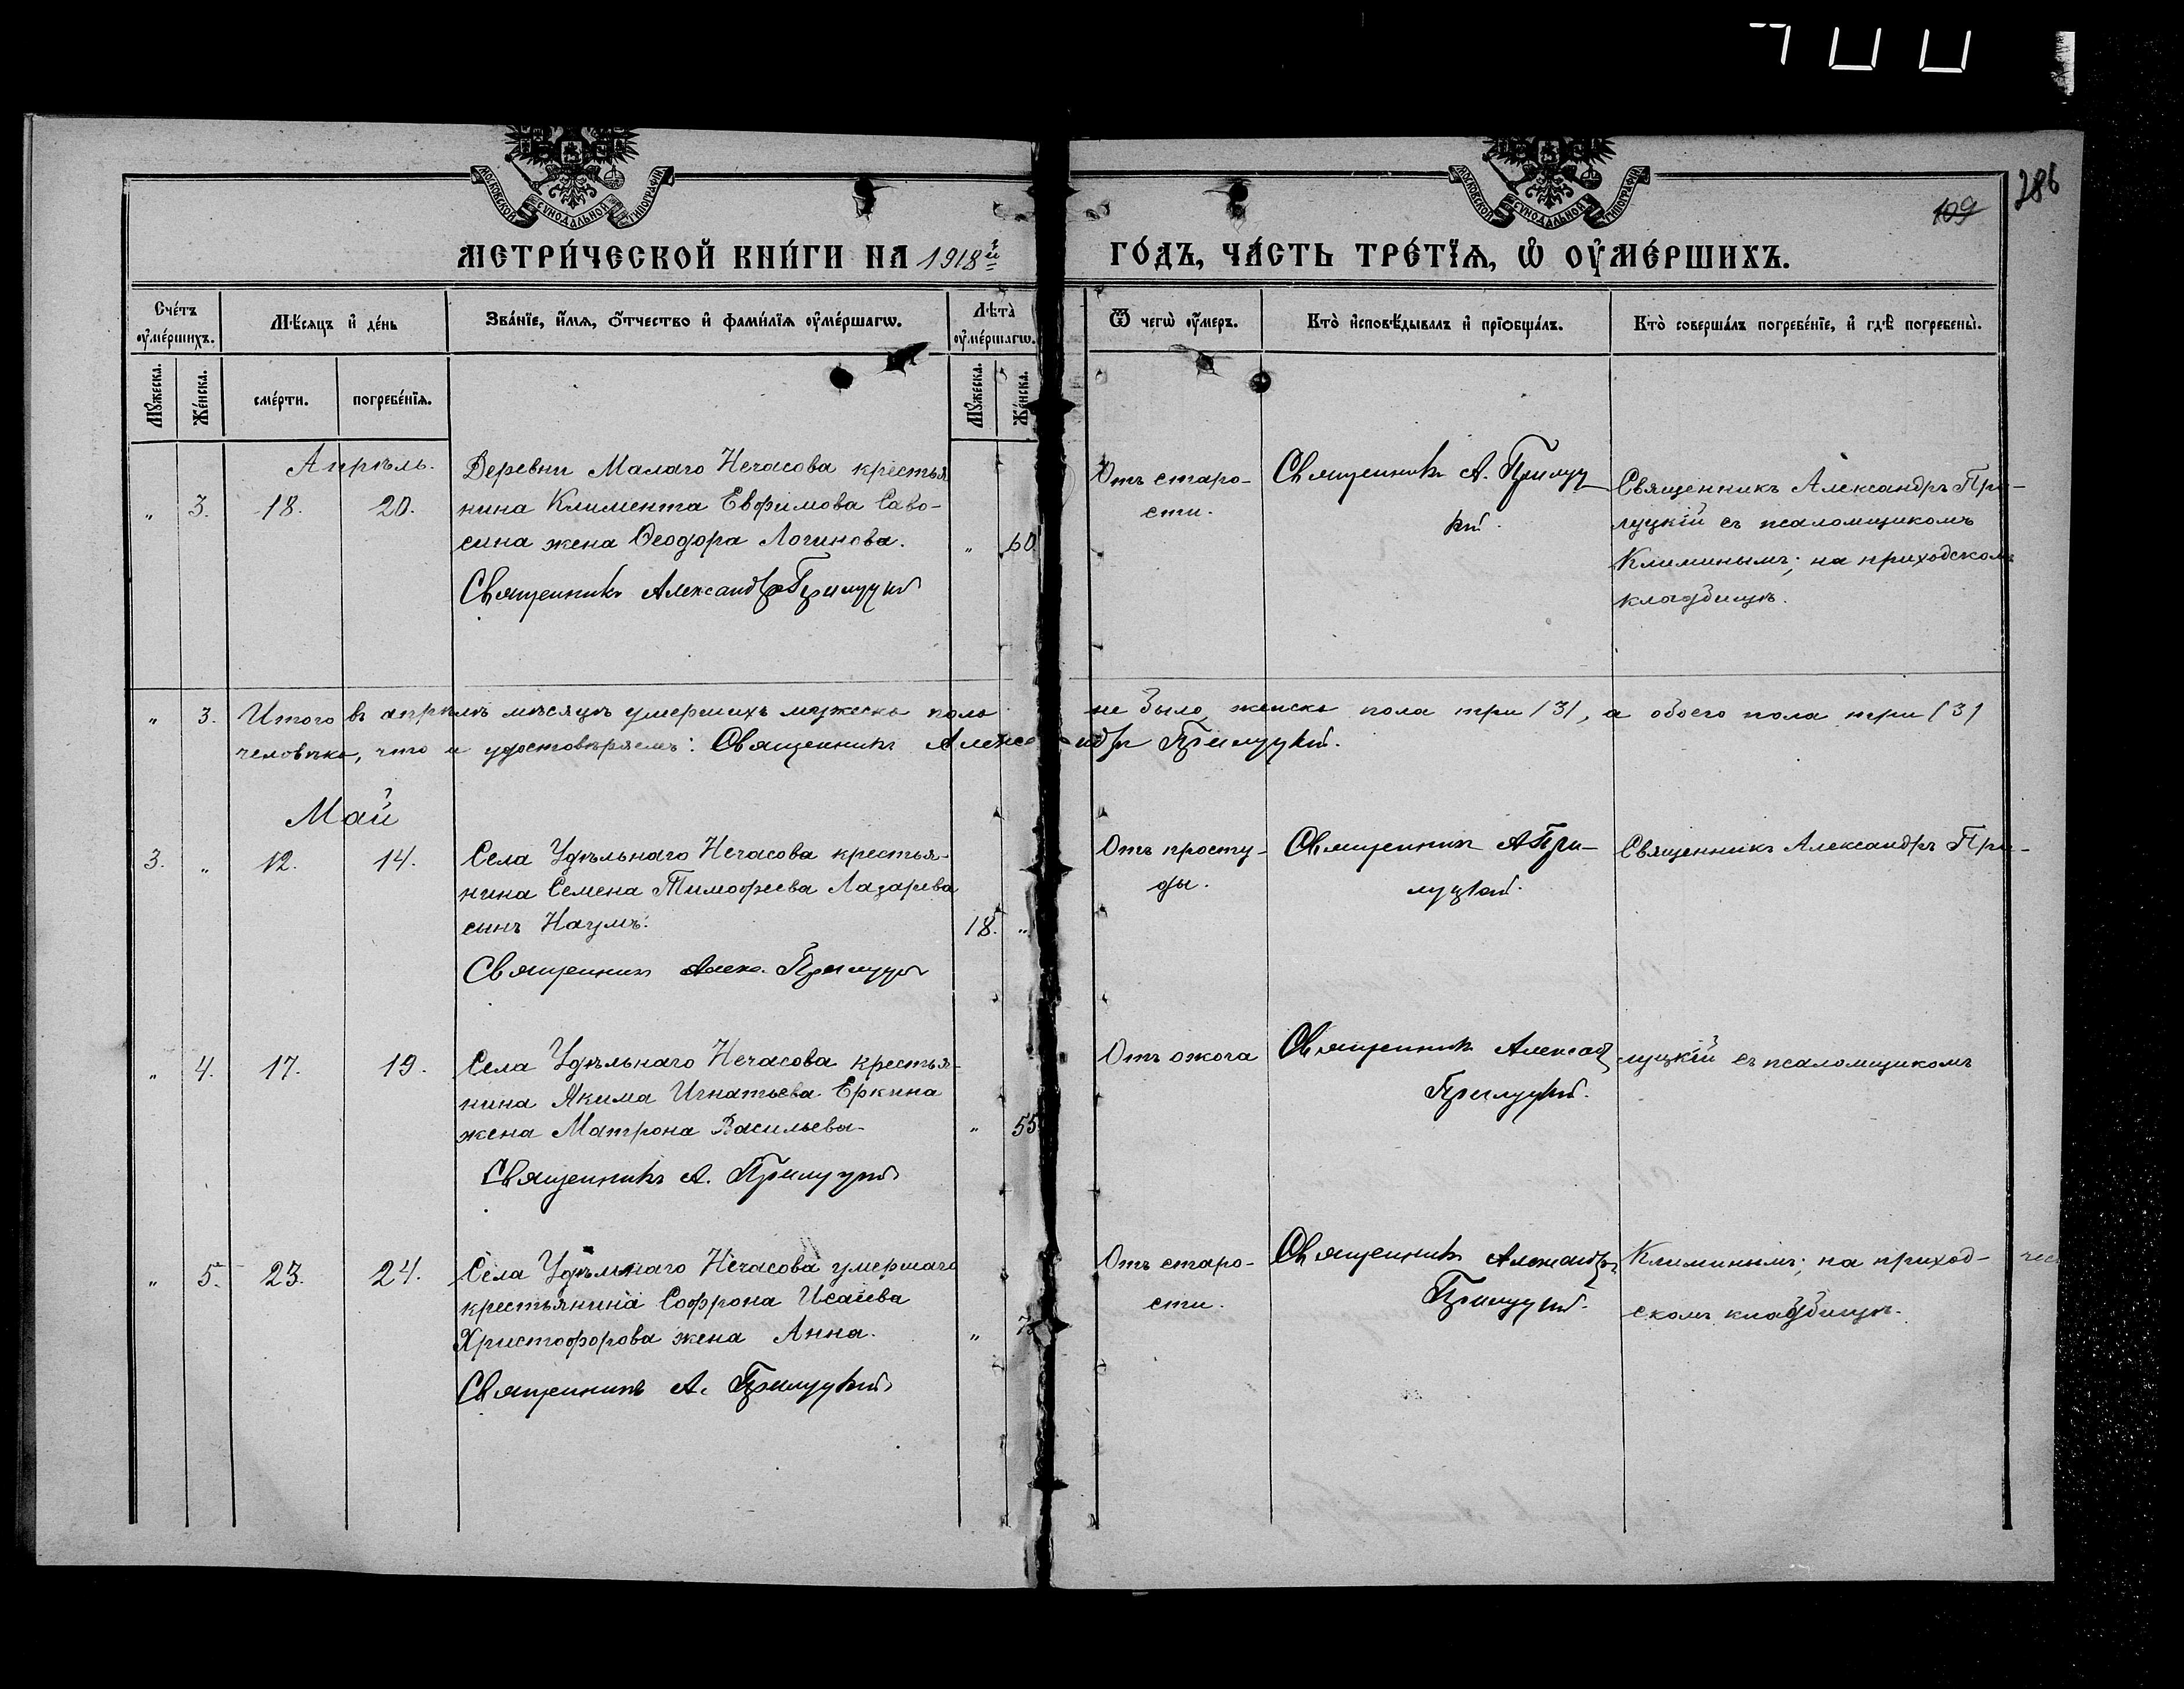 МОСКОВСКОЙ СѴНОДАЛЬНОЙ ТИПОГРАФІИ
МОСКОВСКОЙ СѴНОДАЛЬНОЙ ТИПОГРАФІИ
286
109
МЕТРИ́ЧЕСКОЙ КНИ́ГИ НА 1918й
ГО́ДЪ, ЧА́СТЬ ТРЕ́ТЇѦ, Ѡ ОУМЕ́РШИХЪ.
Сче́тъ оумéршихъ.
Мѣ́сяцъ и де́нь
Зва́нїе, и́мѧ, о́тчество и фами́лїѧ оуме́ршагѡ.
Лѣта̀ оуме́ршагѡ.
Ѿ чегѡ̀ оу́меръ.
Кто̀ исповѣ́дывалъ и прїобща́лъ.
Кто̀ соверша́лъ погребе́нїе, и гдѣ̀ погребены̀.
Му́жеска.
Же́нска.
сме́рти.
погребе́нїѧ.
Му́жеска.
Же́нска.
Апрѣль.
" 3. 18. 20.
Деревни Малаго Нечасова крестья
нина Климента Евфимова Саво-
сина жена Ѳеодора Логинова. " 60
Священникъ Александръ Прилуцкій
Отъ старо-
сти.
Священникъ А. Прилуц
кій.
Священникъ Александръ При-
луцкій съ псаломщикомъ
Климинымъ; на приходскомъ
кладбищѣ.
" 3. Итого въ апрѣлѣ мѣсяцѣ умершихъ мужеска пола не было, женска пола три (3), а обоего пола три (3)
человѣка, что и удостовѣряемъ: Священникъ Александръ Прилуцкій.
Май
3. " 12. 14.
Села Удѣльнаго Нечасова крестья-
нина Семена Тимофеева Лазарева
сынъ Наумъ. 18. "
Священникъ Алекс. Прилуцкій
Отъ просту-
ды.
Священникъ А При-
луцкій.
Священникъ Александръ При-
" 4. 17. 19.
Села Удѣльнаго Нечасова крестья-
нина Якима Игнатьева Еркина
жена Матрона Васильева. " 55
Священникъ А. Прилуцкій
Отъ ожога
Священникъ Александръ
Прилуцкій.
луцкій съ псаломщикомъ
" 5. 23. 24.
Села Удѣльнаго Нечасова умершаго
крестьянина Софрона Исаева
Христофорова жена Анна. "
Священникъ А. Прилуцкій
Отъ старо-
сти.
Священникъ Александръ
Прилуцкій.
Климинымъ; на приход-
скомъ кладбищѣ.